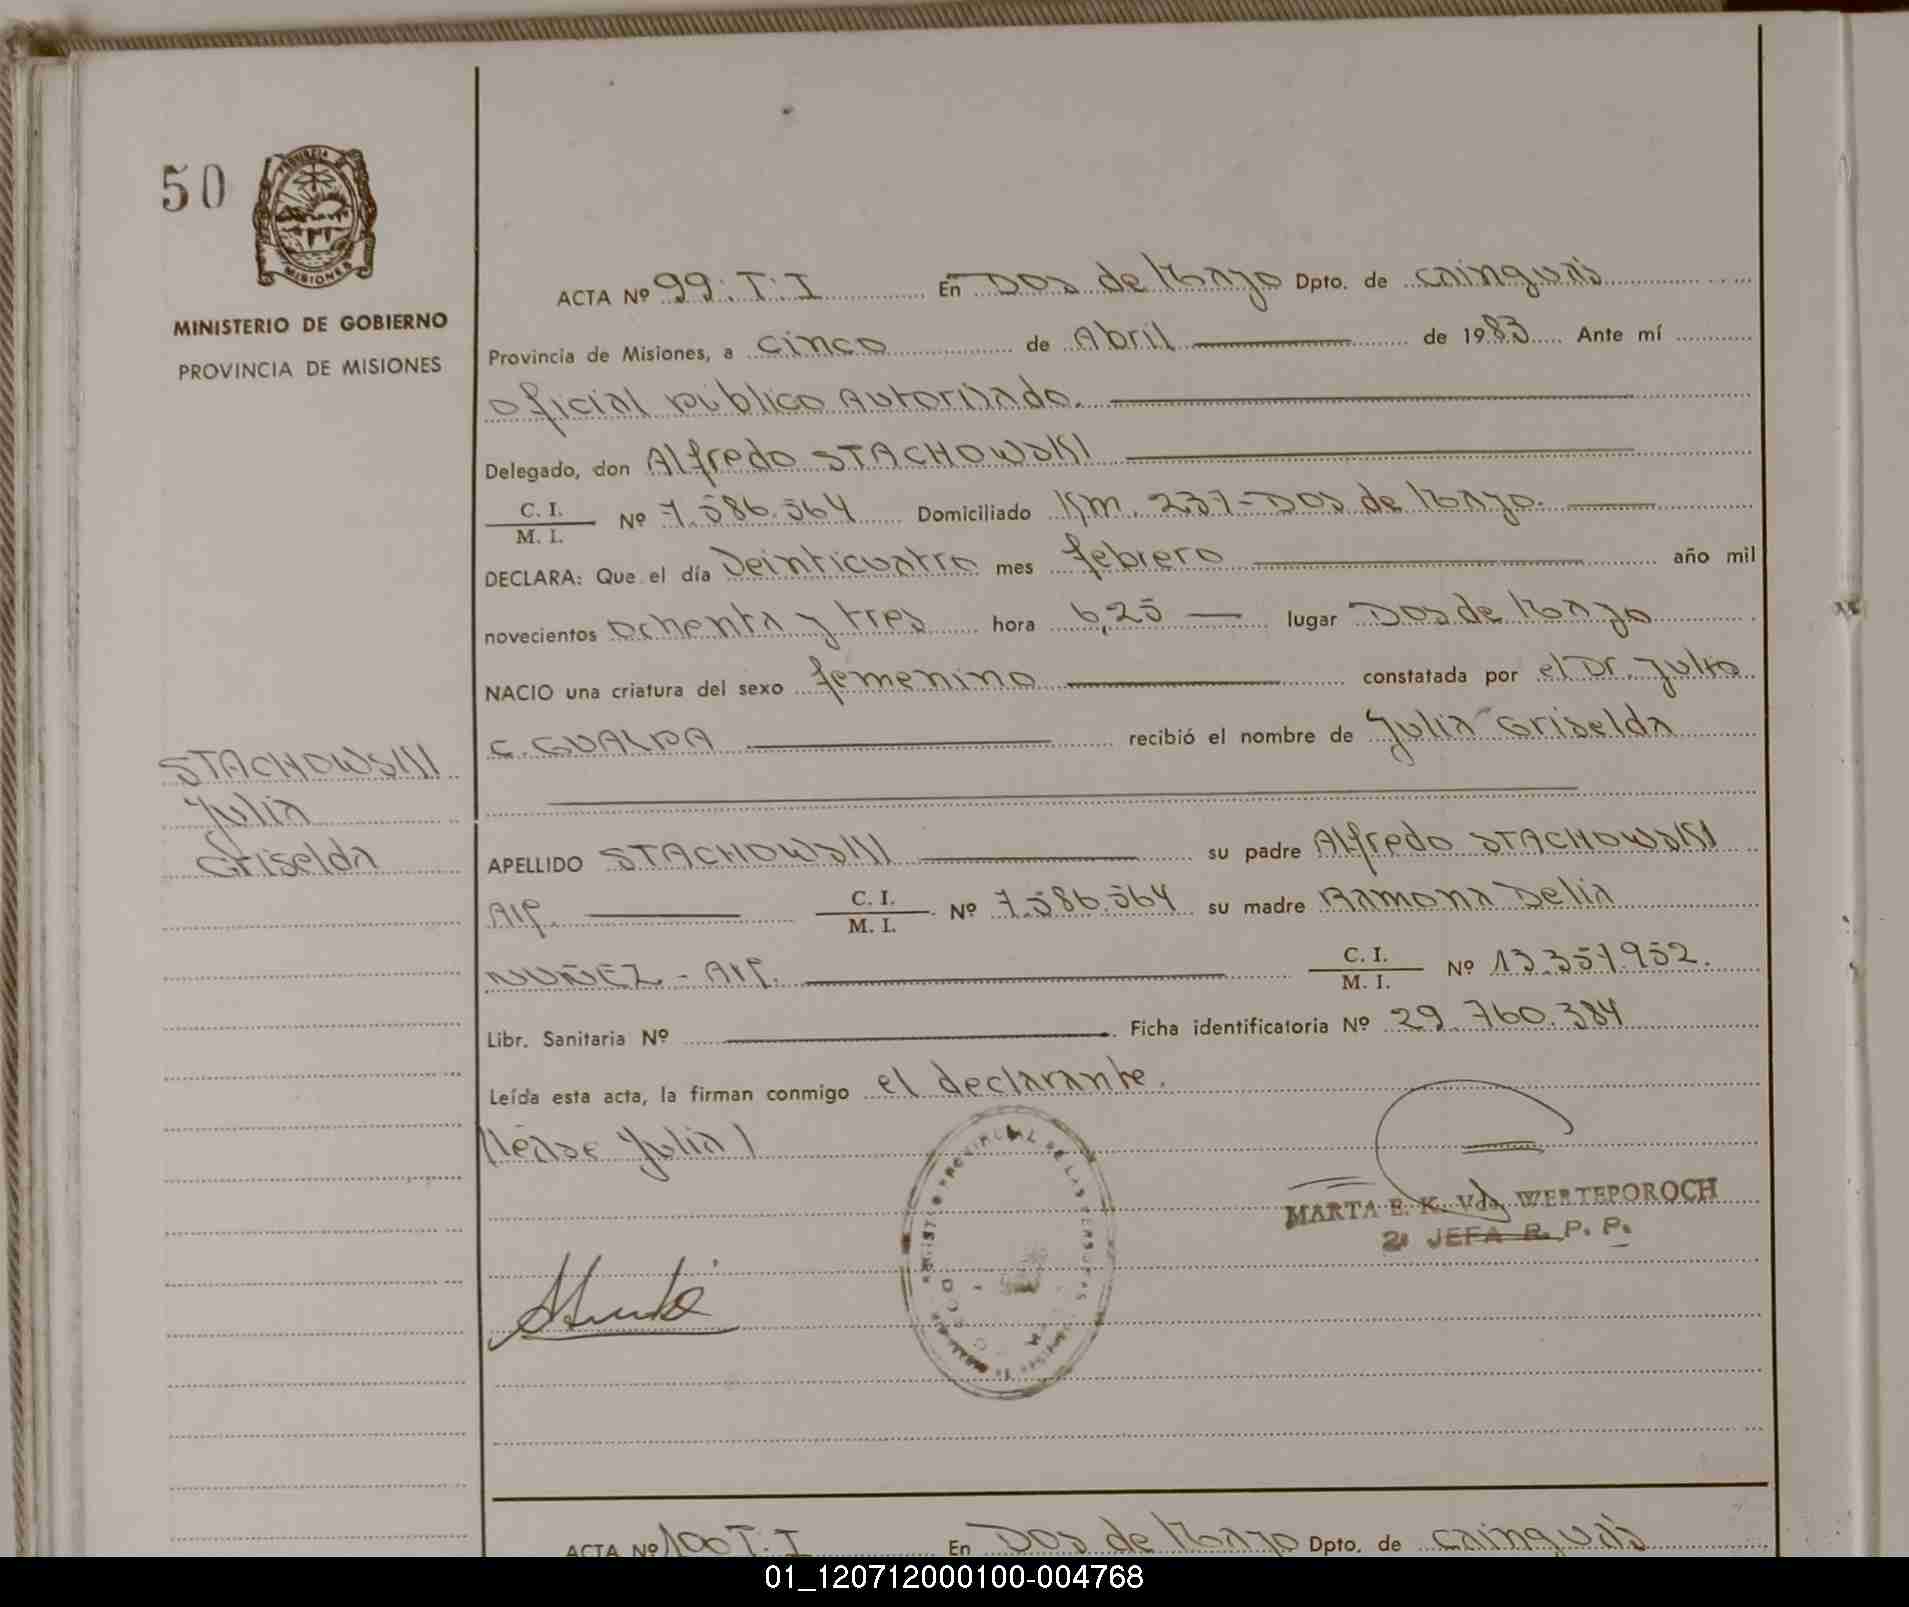 50
PROVINCIA DE
MISIONES
MINISTERIO DE GOBIERNO
PROVINCIA DE MISIONES
ACTA Nº 99. T: I En Dos de Mayo Dpto. de Cainguás
Provincia de Misiones, a cinco de Abril de 1983 Ante mí
oficial público Autorizado.
Delegado, don Alfredo STACHOWSKI
C. I.
M. I. Nº 7.586.564 Domiciliado Km. 237-Dos de Mayo.
DECLARA: Que el día Veinticuatro mes febrero año mil
novecientos ochenta y tres hora 6,25 lugar Dos de Mayo
NACIO una criatura del sexo femenino constatada por el Dr. Julio
C. GUALPA recibió el nombre de Julia Griselda
STACHOWSKI
Julia
Griselda
APELLIDO STACHOWSKI su padre Alfredo STACHOWSKI
Arg. C. I.
M. I. Nº 7.586.564 su madre Ramona Delia
NUÑEZ - Arg. C. I.
M. I. Nº 13.351.952.
Libr. Sanitaria Nº Ficha identificatoria Nº 29.760.384
Leída esta acta, la firman conmigo el declarante.
/léase Julia/
MARTA E. K. Vda. WERTEPOROCH
2ª JEFA R. P. P.
ACTA Nº 100 T. I En Dos de Mayo Dpto. de Cainguás
01_120712000100-004768